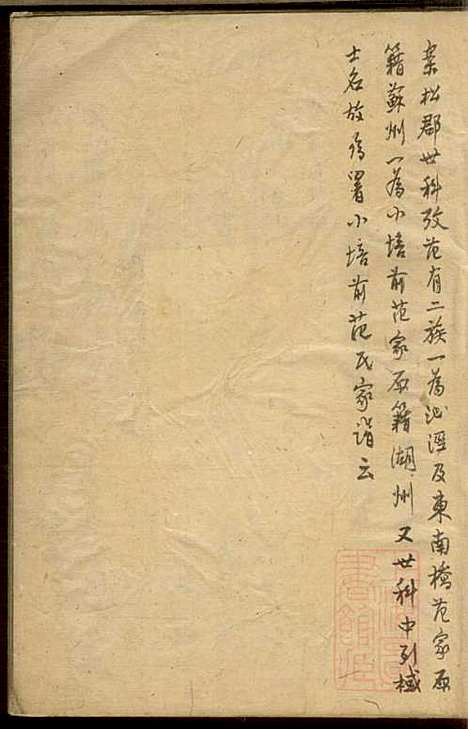 案松郡世科攷范有二族一為泗涇及東南橋范家原
籍蘇州一為小塔前范家原籍湖州又世科中列棫
士名故為署小塔前范氏家譜云